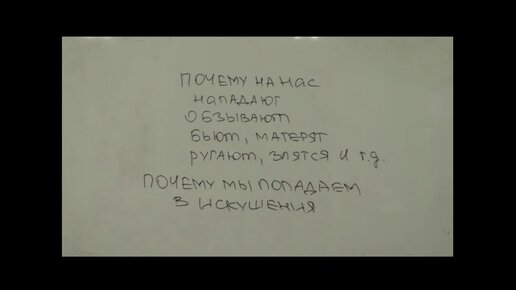 ПОЧЕМУ НА НАС
НАПАДАЮТ
ОБЗЫВАЮТ
БЬЮТ, МАТЕРЯТ
РУГАЮТ, ЗЛЯТСЯ И Т.Д.
ПОЧЕМУ МЫ ПОПАДАЕМ
В ИСКУШЕНИЯ